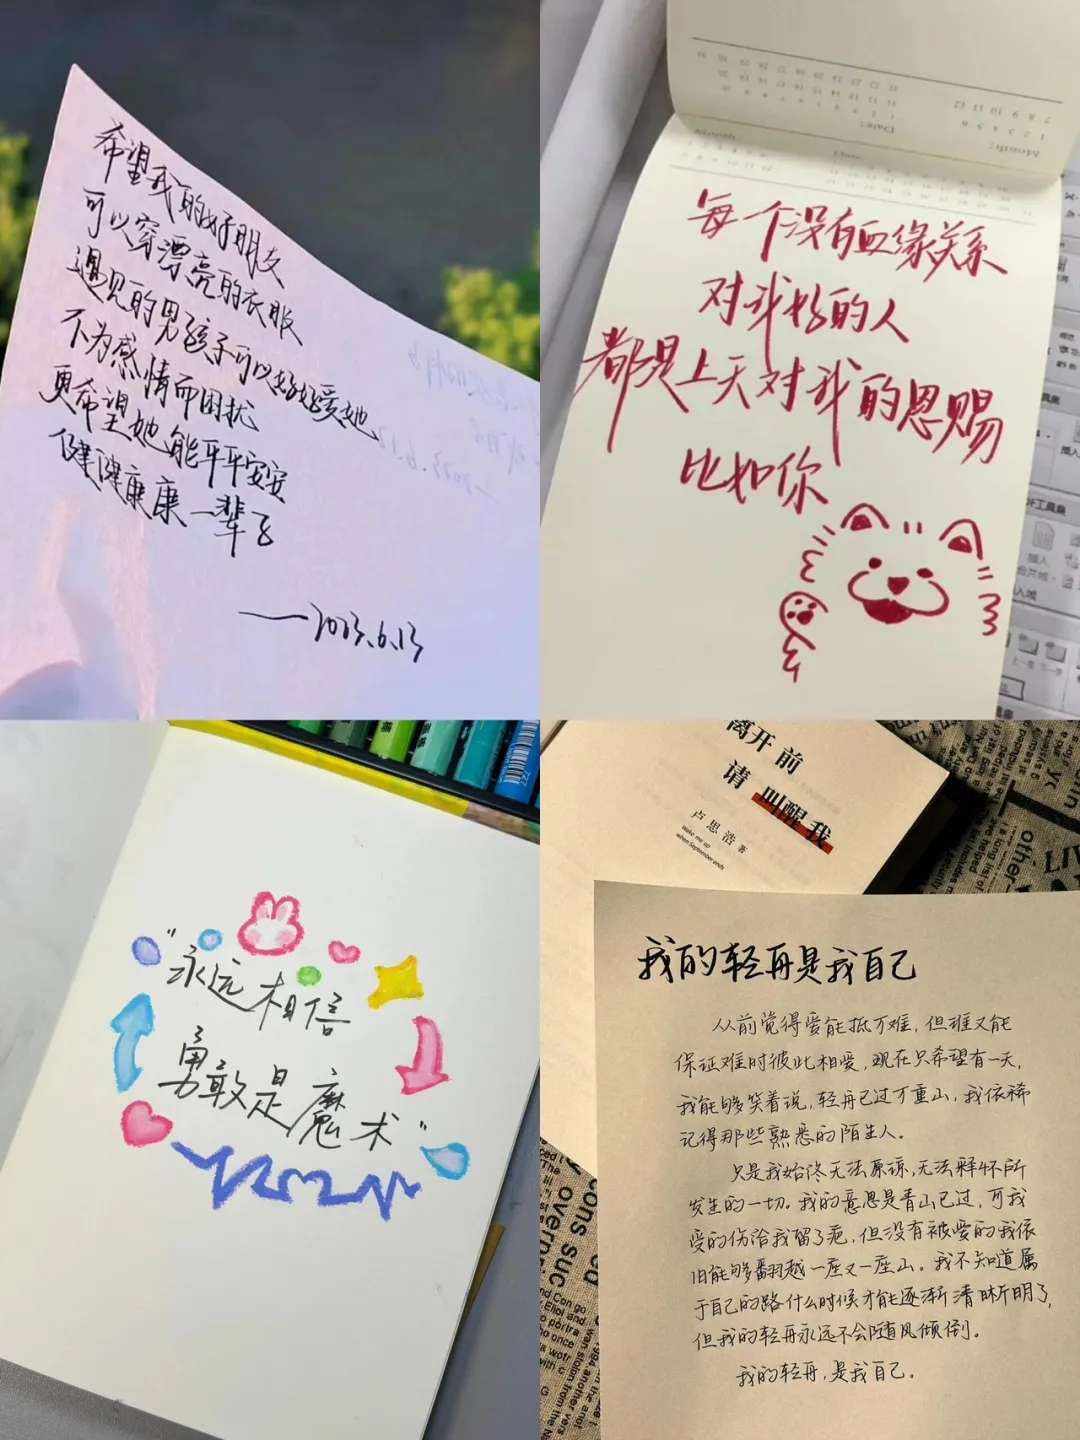 希望我的好朋友
可以穿漂亮的衣服
遇见的男孩子可以好好爱她
不为感情而困扰
更希望她能平平安安
健健康康一辈子
——2023.6.13
Month:
Date:
每个没有血缘关系
对我好的人
都是上天对我的恩赐
比如你
"永远相信
勇敢是魔术"
离开前
请叫醒我
卢思浩 著
wake me up
when September ends
我的轻舟是我自己
从前觉得爱能抵万难，但谁又能
保证难时彼此相爱，现在只希望有一天，
我能够笑着说，轻舟已过万重山，我依稀
记得那些熟悉的陌生人。
只是我始终无法原谅，无法释怀所
发生的一切。我的意思是青山已过，可我
受的伤给我留了疤，但没有被爱的我依
旧能够翻越一座又一座山。我不知道属
于自己的路什么时候才能逐渐清晰明了，
但我的轻舟永远不会随风倾倒。
我的轻舟，是我自己。